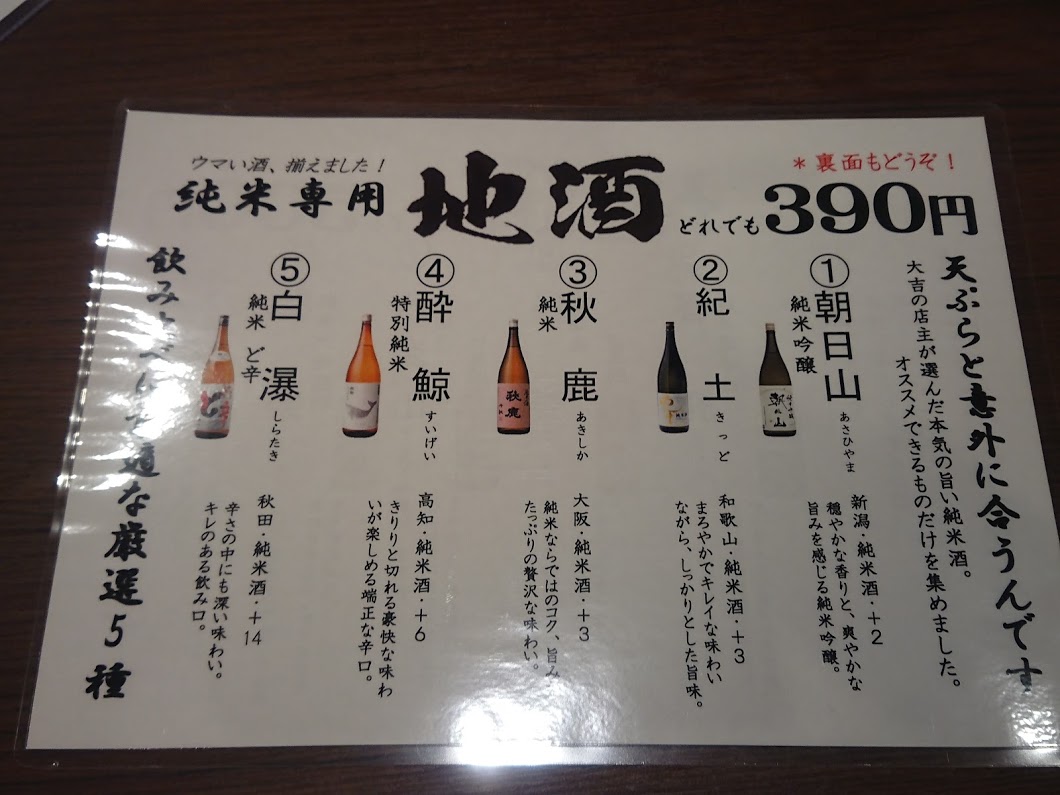 ウマい酒、揃えました！
純米専用
地酒
どれでも
390円
＊裏面もどうぞ！
天ぷらと意外に合うんです
大吉の店主が選んだ本気の旨い純米酒。
オススメできるものだけを集めました。
①朝日山
あさひやま
純米吟醸
朝日山
新潟・純米酒・＋2
穏やかな香りと、爽やかな
旨みを感じる純米吟醸。
②紀土
きっど
和歌山・純米酒・＋3
まろやかでキレイな味わい
ながら、しっかりとした旨味。
③秋鹿
あきしか
純米
秋鹿
大阪・純米酒・＋3
純米ならではのコク、旨み
たっぷりの贅沢な味わい。
④酔鯨
すいげい
特別純米
高知・純米酒・＋6
きりりと切れる豪快な味わ
いが楽しめる端正な辛口。
⑤白瀑
しらたき
純米 ど辛
ど
秋田・純米酒・＋14
辛さの中にも深い味わい。
キレのある飲み口。
飲み
な厳選5種